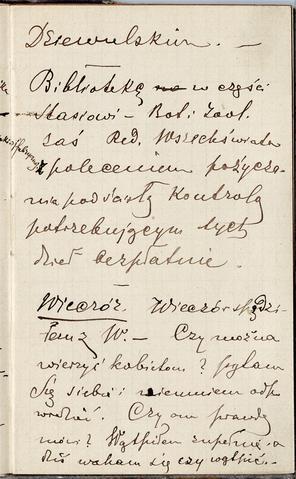 Dziewulskim. —
Bibliotekę w części
Stasiowi — Bot. i Zool.
zaś Red. Wszechświata
z poleceniem pożycza-
nia pod ścisłą kontrolą
potrzebującym tych
dzieł bezpłatnie.
Wieczór. Wieczór spędzi-
łem z W. — Czy można
wierzyć kobietom? pytam
się siebie i niewiem odp-
wiedzieć. Czy on prawdę
mówi? Wątpiłem zupełnie, a
dziś waham się czy wątpić.